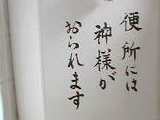 便所には
神様が
おられます